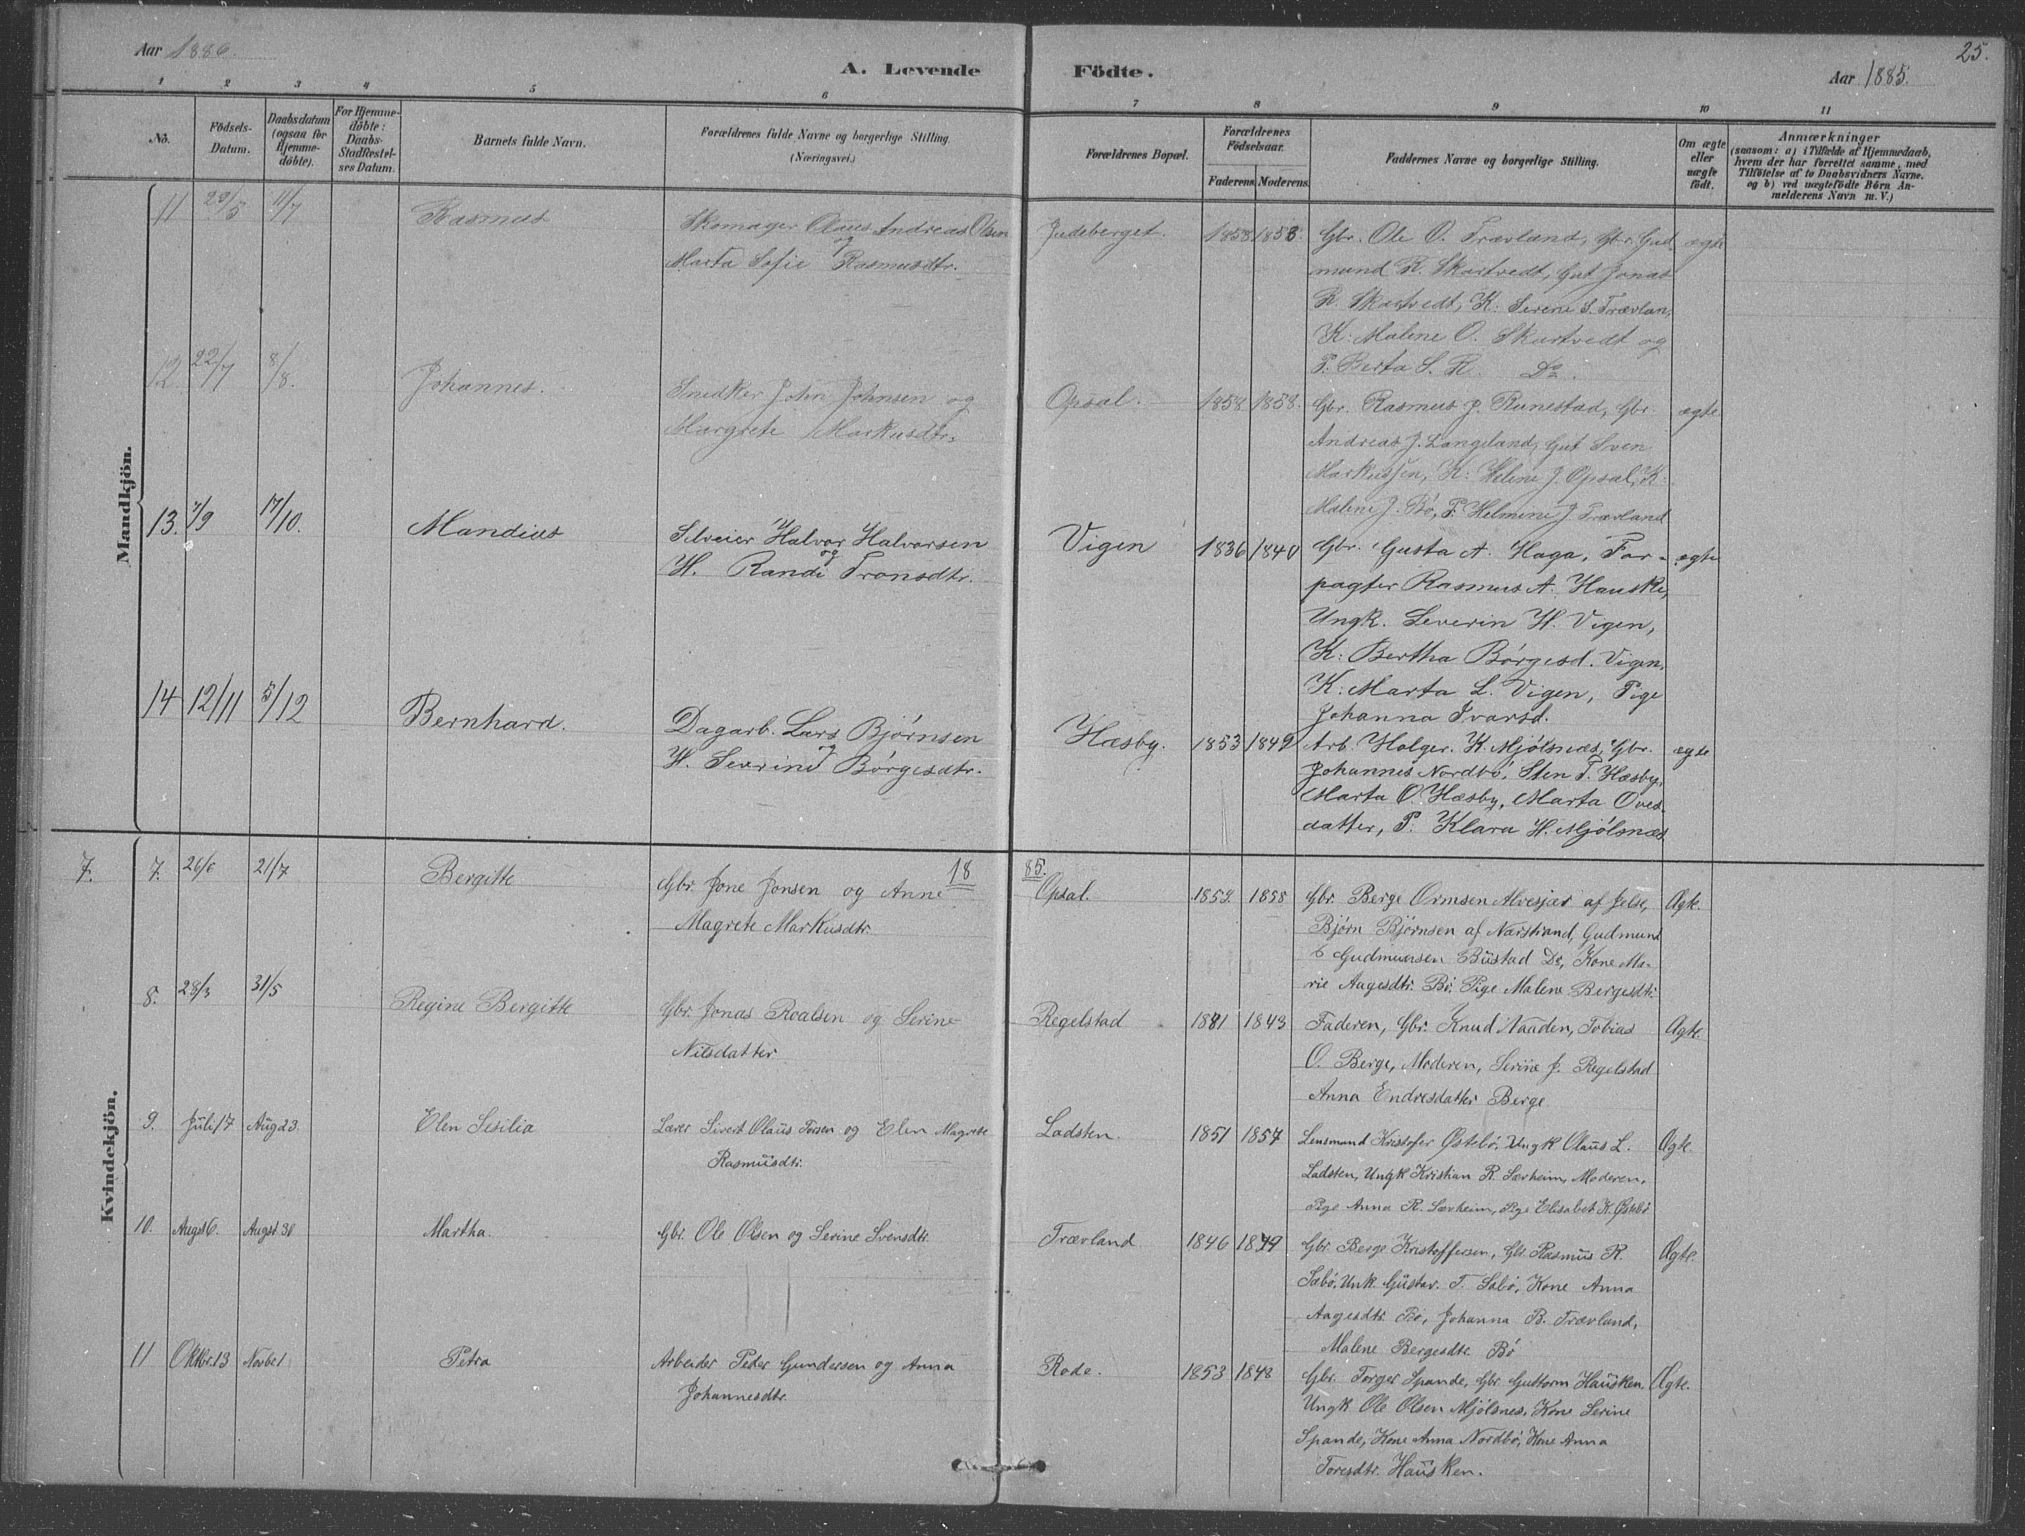 25.
Aar 1886.
A. Levende Födte.
Aar 1885.
1 2 3 4 5 6 7 8 9 10 11
No.
Födsels-
Datum.
Daabsdatum
(ogsaa for
Hjemme-
döbte).
For Hjemme-
döbte:
Daabs-
Stadfæstel-
ses Datum.
Barnets fulde Navn.
Forældrenes fulde Navne og borgerlige Stilling
(Næringsvei.)
Forældrenes Bopæl.
Forældrenes
Födselsaar.
Faderens. Moderens.
Faddernes Navne og borgerlige Stilling.
Om ægte
eller
uægte
födt.
Anmærkninger
(saasom: a) i Tilfælde af Hjemmedaab,
hvem der har forrettet samme, med
Tilföielse af to Daabsvidners Navne,
og b) ved uægtefödte Börn An-
melderens Navn m. V.)
Mandkjön.
11 29/5 11/7 Rasmus Skomager Olaus Andreas Olsen Judeberget. 1858 1858. Gbr. Ole O. Trævland, Gbr. Gud ægte
og
Marta Sofie Rasmusdtr. mund R. Skartvedt, Gut Jonas
R. Skartvedt, K. Serene S. Trævlan,
K. Malene O. Skartvedt og
P. Berta S. R. Do.
12 22/7 8/8. Johannes. Snedker John Johnsen og Opsal. 1858 1858. Gbr. Rasmus J. Runestad, Gbr. ægte
Margrete Markusdtr. Andreas J. Langeland, Gut Sven
Markussen, K. Helene J. Opsal, K.
Malene J. Bø, P. Helmine J. Trævland
13. 7/9 17/10. Mandius Selveier Halvor Halvorsen Vigen 1836 1840 Gbr. Gusta A. Haga, For- ægte
og
H. Randi Tronsdtr. pagter Rasmus A. Hauske,
Ungk. Severin H. Vigen,
K. Bertha Børgesd. Vigen,
K. Marta L. Vigen, Pige
Johanna Ivarsd.
14 12/11 5/12 Bernhard. Dagarb. Lars Bjørnsen Hæsby. 1853 1849 Arb. Holger. K. Mjølsnæs, Gbr. ægte
og
H. Severine Børgesdtr. Johannes Nordbø, Sten T. Hæsby,
Marta O. Hæsby, Marta Oves-
datter, P. Klara H. Mjølsnæs
Kvindekjön.
18 85.
7. 7. 26/6 21/7 Bergitte Gbr. Jone Jonsen og Anne Opsal. 1859. 1858 Gbr. Berge Ormsen Alvesjær af Jelse, Ægte.
Magrete Markusdtr. Bjørn Bjørnsen af Nærstrand, Gudmund
Gudmunsen Büstad Do, Kone Ma-
rie Aagesdtr. Bø, Pige Malene Bergesdtr.
8. 28/3 31/5 Regine Bergitte Gbr. Jonas Roalsen og Serine Regelstad 1841 1843 Faderen, Gbr. Knud Naaden, Tobias Ægte.
Nilsdatter O. Berge, Moderen, Serine J. Regelstad
Anna Endresdatter Berge
9. Juli 17 Aug 23. Elen Sesilia Lærer Sivert Olaus Torsen og Elen Magrete Ladsten. 1851 1857 Lensmand Kristofer Østebø, Ungk Olaüs L. Ægte.
Rasmüsdtr. Ladsten, Ungk Kristian R. Særheim, Moderen,
Pige Anna R. Særheim, Pige Elisabet K. Østebø
10. Augst 6. Augst 30 Martha. Gbr. Ole Olsen og Serine Svensdtr. Trævland. 1846 1849 Gbr. Berge Kristoffersen, Gbr Rasmus R. Ægte.
Sæbø, Unk. Güstav. T. Sæbø, Kone Anna
Aagesdtr. Bø, Johanna B. Trævland,
Malene Bergesdtr. Bø
11 Oktbr. 13 Novbr 1 Petra Arbeider Peder Gundersen og Anna Rode. 1853 1848 Gbr. Torger Spande, Gbr Guttorm Haüsken, Ægte.
Johannesdtr. Ungk Ole Olsen Mjølsnes, Kone Serine
Spande, Kone Anna Nordbø, Kone Anna
Toresdtr. Haüsken.